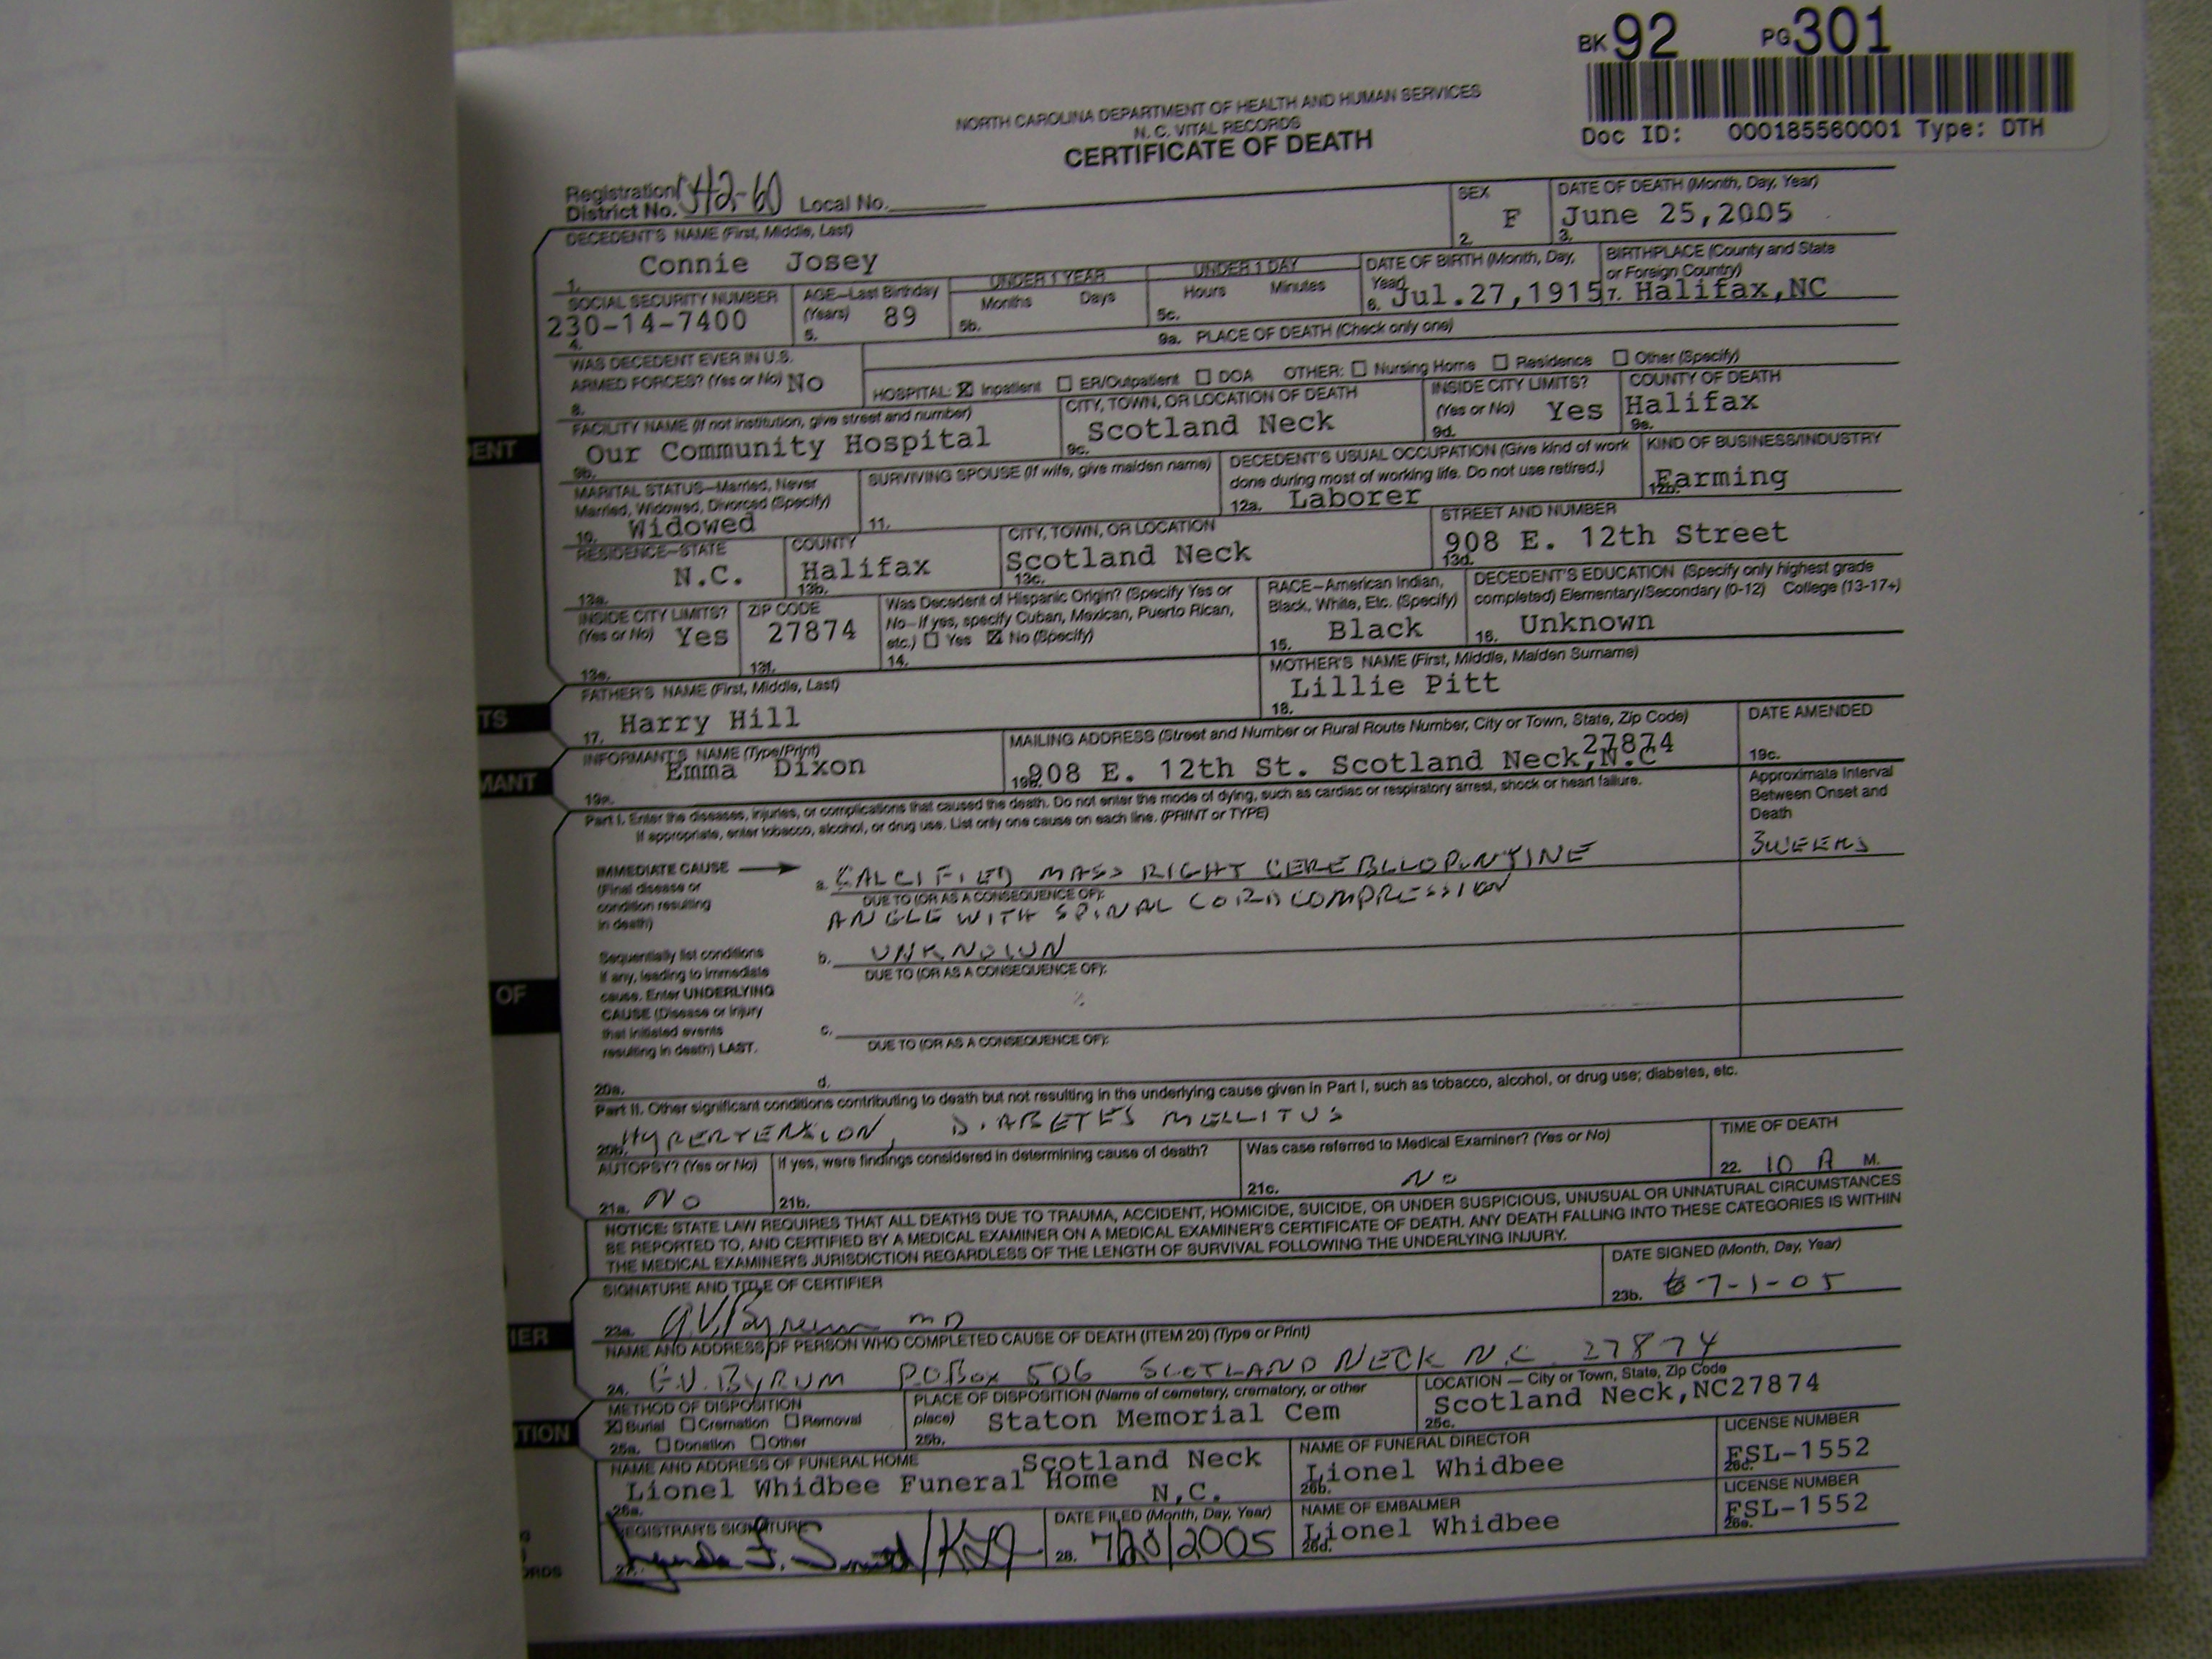 BK 92 PG 301
Doc ID: 000185560001 Type: DTH
NORTH CAROLINA DEPARTMENT OF HEALTH AND HUMAN SERVICES
N. C. VITAL RECORDS
CERTIFICATE OF DEATH
Registration District No. 42-60 Local No.
DECEDENT'S NAME (First, Middle, Last)
1. Connie Josey
SEX
2. F
DATE OF DEATH (Month, Day, Year)
3. June 25,2005
SOCIAL SECURITY NUMBER
230-14-7400
4.
AGE—Last Birthday (Years)
5. 89
UNDER 1 YEAR
Months Days
5b.
UNDER 1 DAY
Hours Minutes
5c.
DATE OF BIRTH (Month, Day, Year)
6. Jul.27,1915
BIRTHPLACE (County and State or Foreign Country)
7. Halifax,NC
WAS DECEDENT EVER IN U.S.
ARMED FORCES? (Yes or No) No
8.
9a. PLACE OF DEATH (Check only one)
HOSPITAL: ☒ Inpatient ☐ ER/Outpatient ☐ DOA OTHER: ☐ Nursing Home ☐ Residence ☐ Other (Specify)
FACILITY NAME (If not institution, give street and number)
Our Community Hospital
9b.
CITY, TOWN, OR LOCATION OF DEATH
9c. Scotland Neck
INSIDE CITY LIMITS?
(Yes or No) Yes
9d.
COUNTY OF DEATH
Halifax
9e.
MARITAL STATUS—Married, Never
Married, Widowed, Divorced (Specify)
10. Widowed
SURVIVING SPOUSE (If wife, give maiden name)
11.
DECEDENT'S USUAL OCCUPATION (Give kind of work
done during most of working life. Do not use retired.)
12a. Laborer
KIND OF BUSINESS/INDUSTRY
12b. Farming
RESIDENCE—STATE
N.C.
13a.
COUNTY
Halifax
13b.
CITY, TOWN, OR LOCATION
Scotland Neck
13c.
STREET AND NUMBER
908 E. 12th Street
13d.
INSIDE CITY LIMITS?
(Yes or No) Yes
13e.
ZIP CODE
27874
13f.
Was Decedent of Hispanic Origin? (Specify Yes or
No—If yes, specify Cuban, Mexican, Puerto Rican,
etc.) ☐ Yes ☒ No (Specify)
14.
RACE—American Indian,
Black, White, Etc. (Specify)
15. Black
DECEDENT'S EDUCATION (Specify only highest grade
completed) Elementary/Secondary (0-12) College (13-17+)
16. Unknown
FATHER'S NAME (First, Middle, Last)
17. Harry Hill
MOTHER'S NAME (First, Middle, Maiden Surname)
Lillie Pitt
18.
INFORMANT'S NAME (Type/Print)
Emma Dixon
19a.
MAILING ADDRESS (Street and Number or Rural Route Number, City or Town, State, Zip Code)
27874
19b. 908 E. 12th St. Scotland Neck,N.C
DATE AMENDED
19c.
Part I. Enter the diseases, injuries, or complications that caused the death. Do not enter the mode of dying, such as cardiac or respiratory arrest, shock or heart failure.
If appropriate, enter tobacco, alcohol, or drug use. List only one cause on each line. (PRINT or TYPE)
Approximate Interval
Between Onset and
Death
IMMEDIATE CAUSE
(Final disease or
condition resulting
in death)
a. CALCIFIED MASS RIGHT CEREBLLOPONTINE
3 WEEKS
DUE TO (OR AS A CONSEQUENCE OF):
ANGLE WITH SPINAL CORD COMPRESSION
Sequentially list conditions
if any, leading to immediate
cause. Enter UNDERLYING
CAUSE (Disease or injury
that initiated events
resulting in death) LAST.
b. UNKNOWN
DUE TO (OR AS A CONSEQUENCE OF):
c.
DUE TO (OR AS A CONSEQUENCE OF):
20a. d.
Part II. Other significant conditions contributing to death but not resulting in the underlying cause given in Part I, such as tobacco, alcohol, or drug use; diabetes, etc.
20b. HYPERTENSION, DIABETES MELLITUS
AUTOPSY? (Yes or No)
21a. NO
If yes, were findings considered in determining cause of death?
21b.
Was case referred to Medical Examiner? (Yes or No)
21c. No
TIME OF DEATH
22. 10 A M.
NOTICE: STATE LAW REQUIRES THAT ALL DEATHS DUE TO TRAUMA, ACCIDENT, HOMICIDE, SUICIDE, OR UNDER SUSPICIOUS, UNUSUAL OR UNNATURAL CIRCUMSTANCES
BE REPORTED TO, AND CERTIFIED BY A MEDICAL EXAMINER ON A MEDICAL EXAMINER'S CERTIFICATE OF DEATH. ANY DEATH FALLING INTO THESE CATEGORIES IS WITHIN
THE MEDICAL EXAMINER'S JURISDICTION REGARDLESS OF THE LENGTH OF SURVIVAL FOLLOWING THE UNDERLYING INJURY.
SIGNATURE AND TITLE OF CERTIFIER
23a. G.V. Byrum MD
DATE SIGNED (Month, Day, Year)
23b. 7-1-05
NAME AND ADDRESS OF PERSON WHO COMPLETED CAUSE OF DEATH (ITEM 20) (Type or Print)
24. G.V. BYRUM P.O. Box 506 SCOTLAND NECK N.C. 27874
METHOD OF DISPOSITION
☒ Burial ☐ Cremation ☐ Removal
25a. ☐ Donation ☐ Other
PLACE OF DISPOSITION (Name of cemetery, crematory, or other
place) Staton Memorial Cem
25b.
LOCATION — City or Town, State, Zip Code
Scotland Neck,NC27874
25c.
NAME AND ADDRESS OF FUNERAL HOME Scotland Neck
Lionel Whidbee Funeral Home N,C.
26a.
NAME OF FUNERAL DIRECTOR
Lionel Whidbee
26b.
LICENSE NUMBER
FSL-1552
26c.
REGISTRAR'S SIGNATURE
27.
DATE FILED (Month, Day, Year)
28. 7/20/2005
NAME OF EMBALMER
Lionel Whidbee
26d.
LICENSE NUMBER
FSL-1552
26e.
ENT
TS
MANT
OF
IER
TION
ORDS